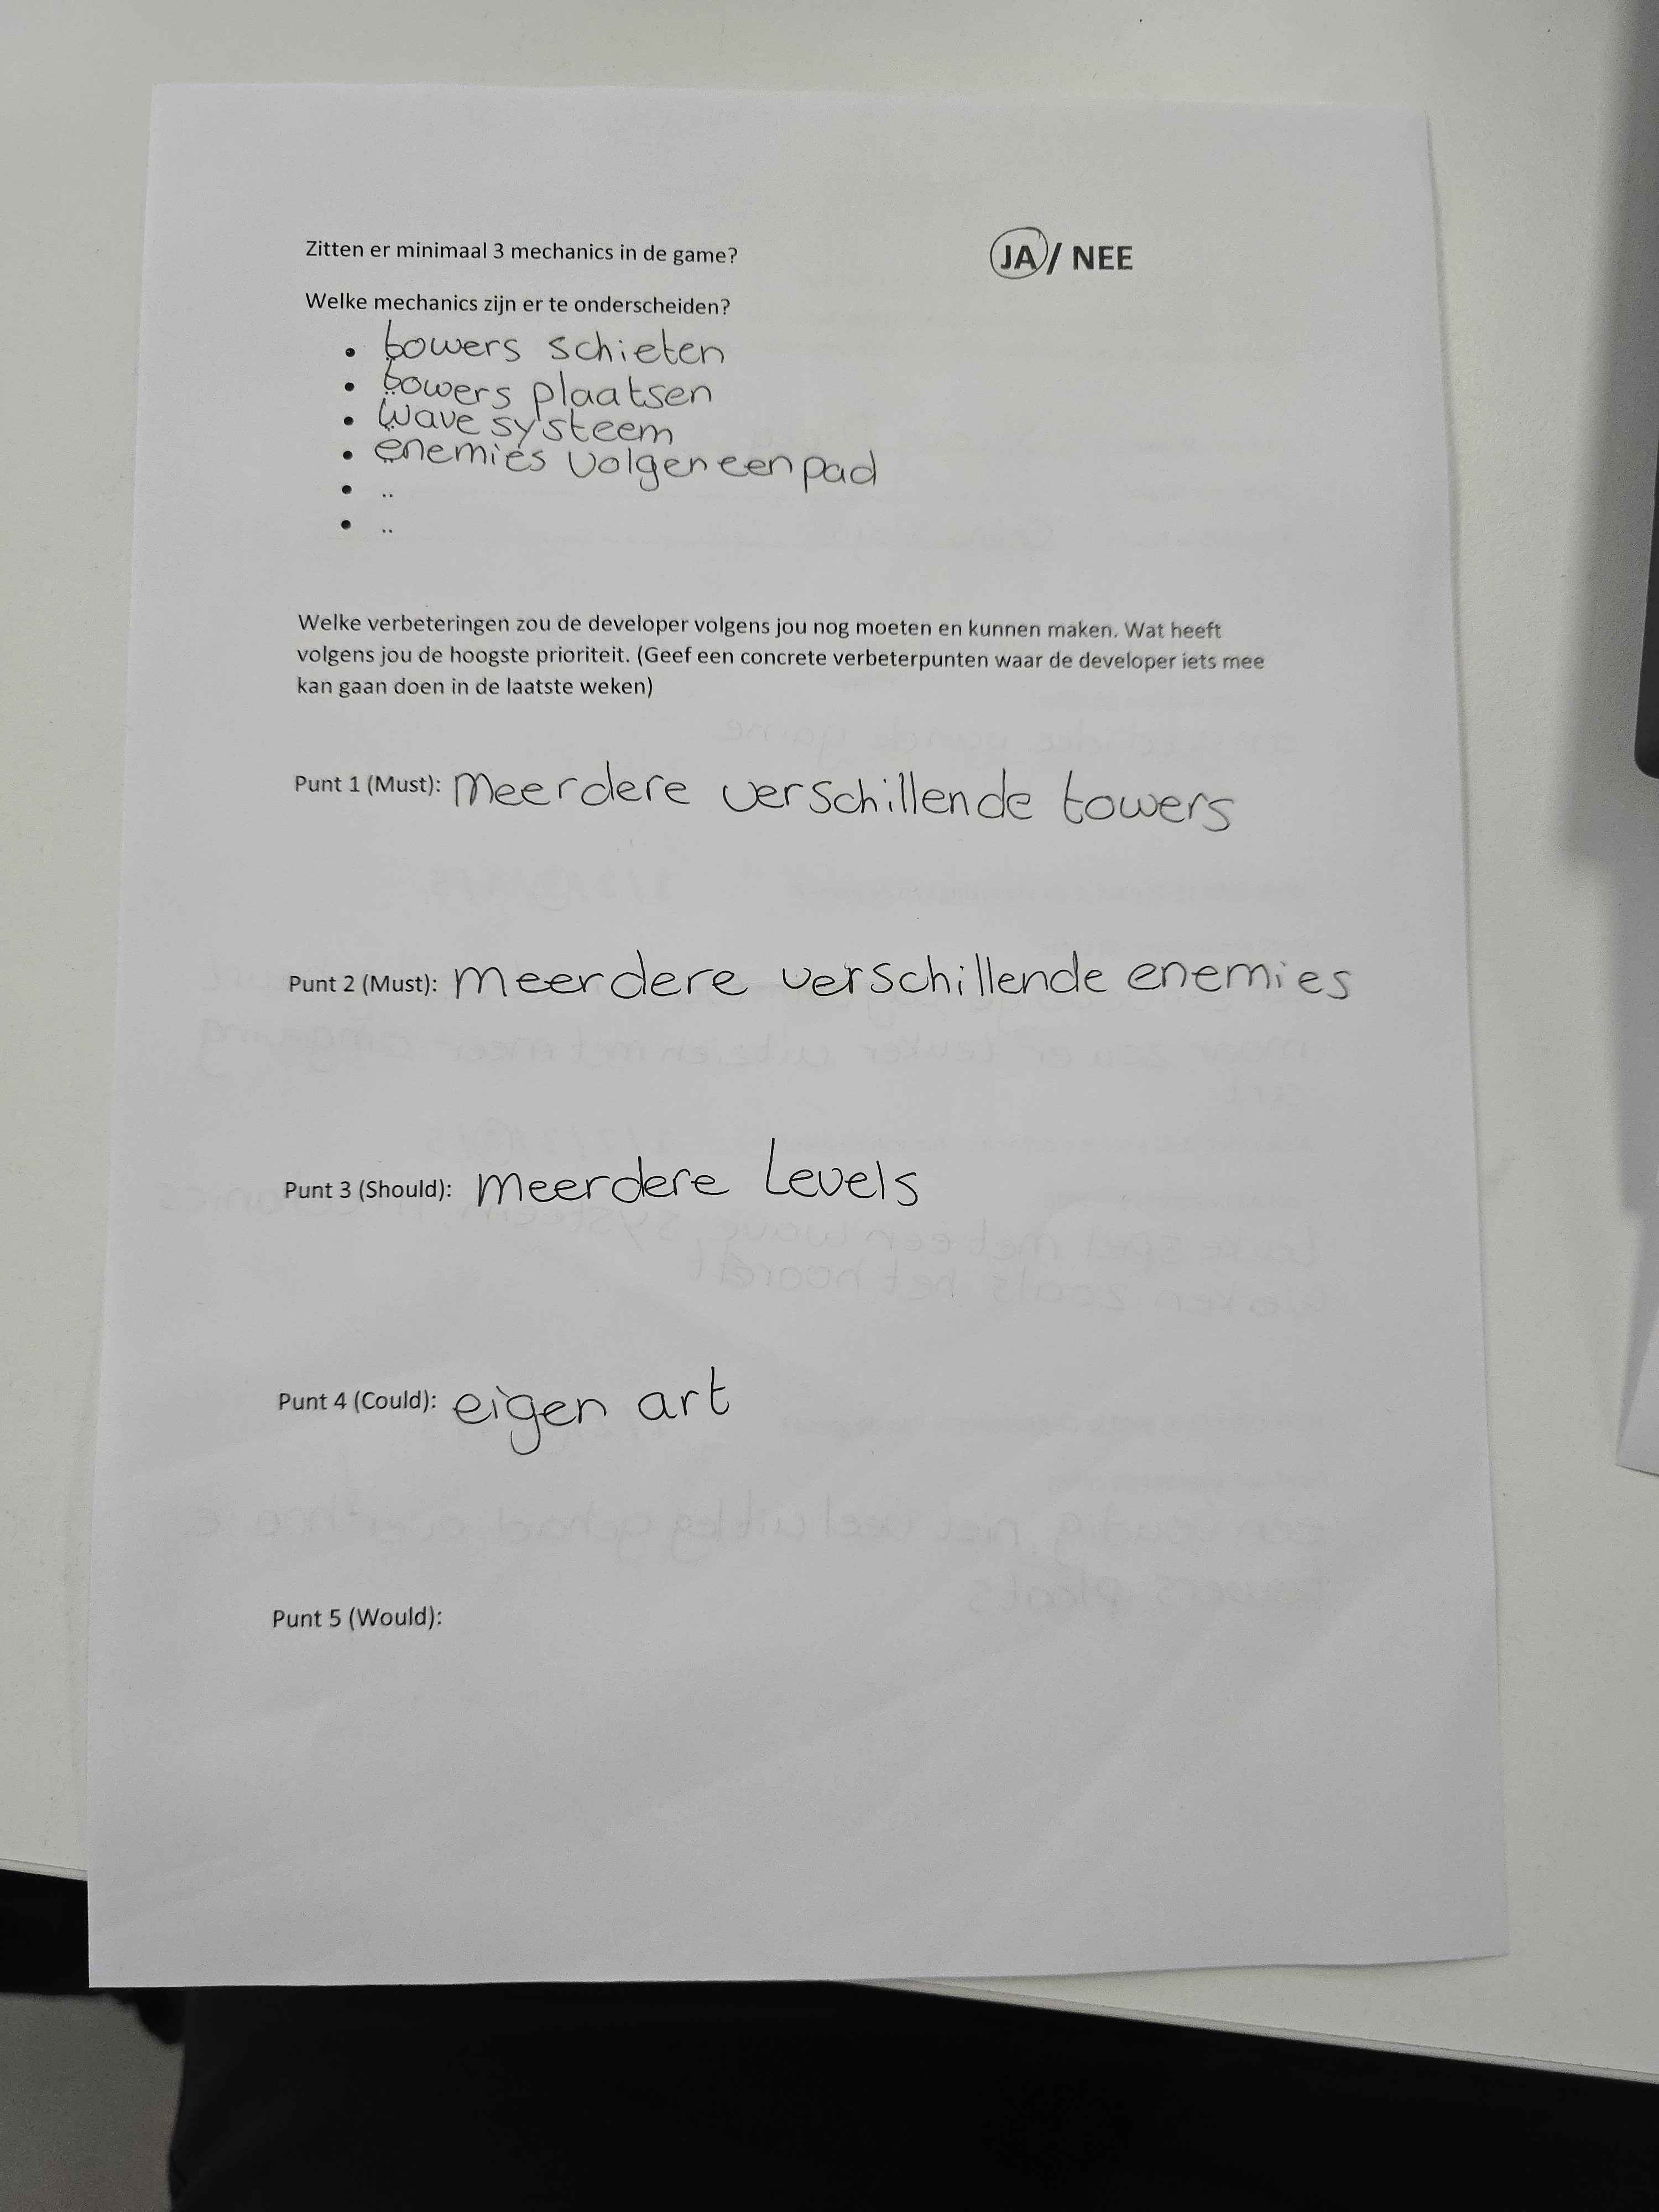 Zitten er minimaal 3 mechanics in de game? JA / NEE
Welke mechanics zijn er te onderscheiden?
• towers schieten
• towers plaatsen
• wave systeem
• enemies volgen een pad
• ..
• ..
Welke verbeteringen zou de developer volgens jou nog moeten en kunnen maken. Wat heeft
volgens jou de hoogste prioriteit. (Geef een concrete verbeterpunten waar de developer iets mee
kan gaan doen in de laatste weken)
Punt 1 (Must): meerdere verschillende towers
Punt 2 (Must): meerdere verschillende enemies
Punt 3 (Should): meerdere levels
Punt 4 (Could): eigen art
Punt 5 (Would):